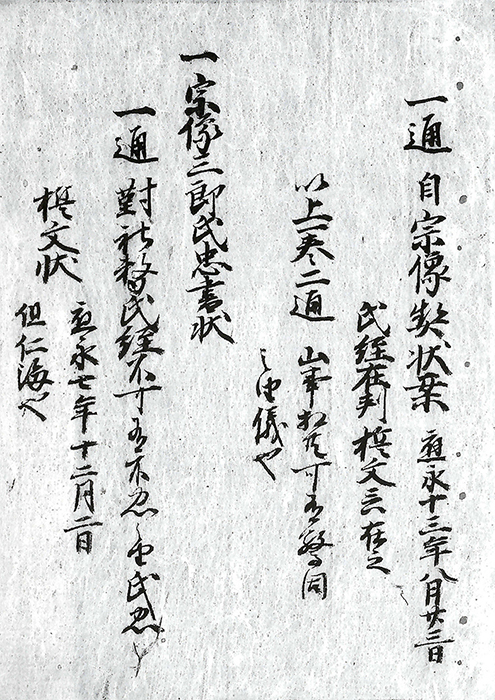 一通 自宗像契状案 應永十三年八月廿三日
氏経在判 桜文三在之
以上一巻二通 山事 可 警固
之由儀也
一宗像三郎氏忠書状
一通 對社務氏経不可 不忠之由氏忠
状
應永七年十二月二日
但仁海也